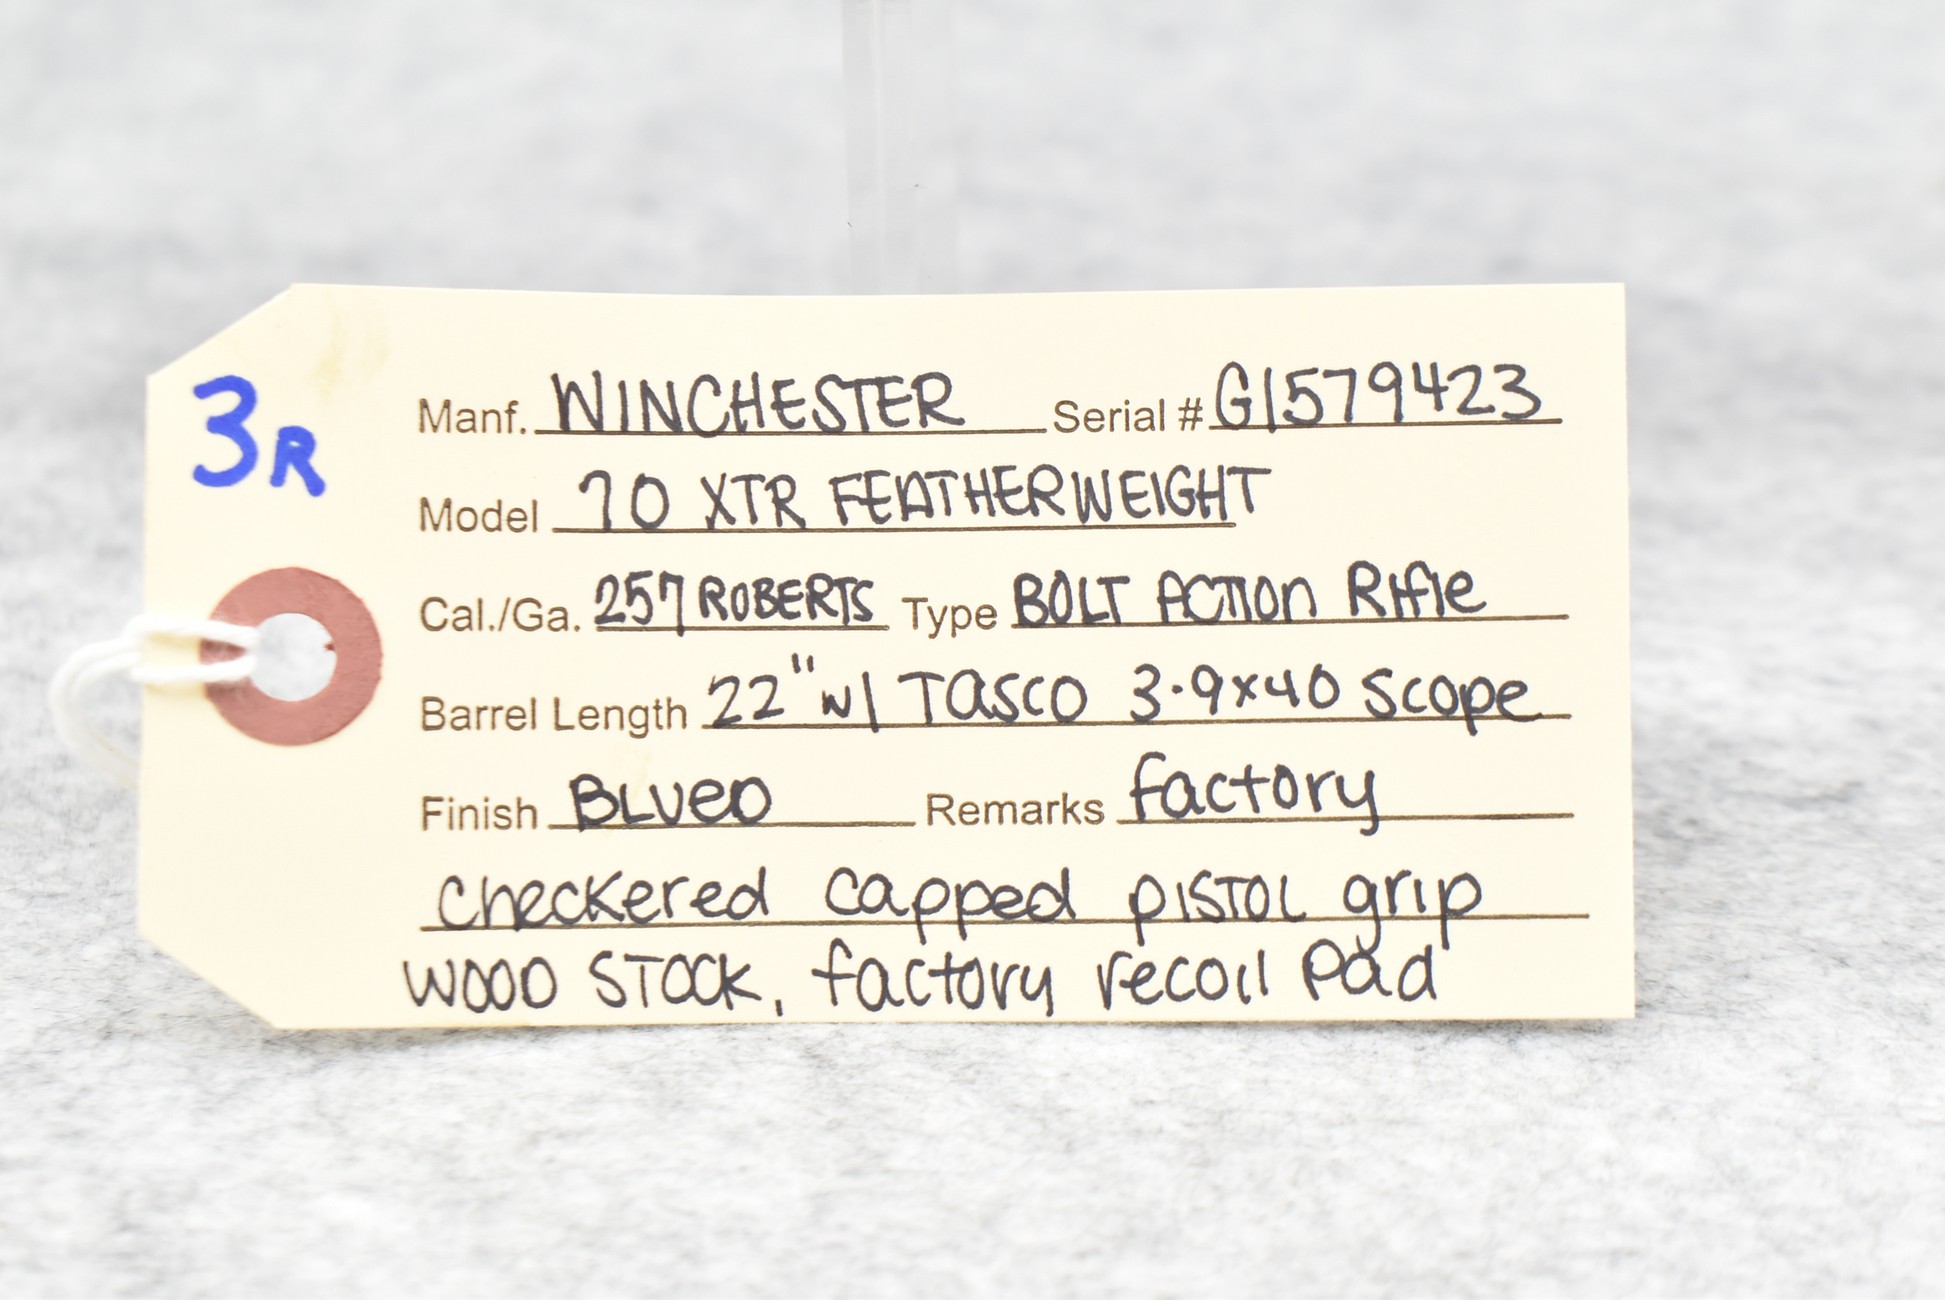 3R
Manf. WINCHESTER Serial # G1579423
Model 70 XTR FEATHERWEIGHT
Cal./Ga. 257 ROBERTS Type BOLT ACTION Rifle
Barrel Length 22" w/ TASCO 3-9x40 Scope
Finish BLUED Remarks factory
checkered capped PISTOL grip
WOOD STOCK, factory recoil Pad